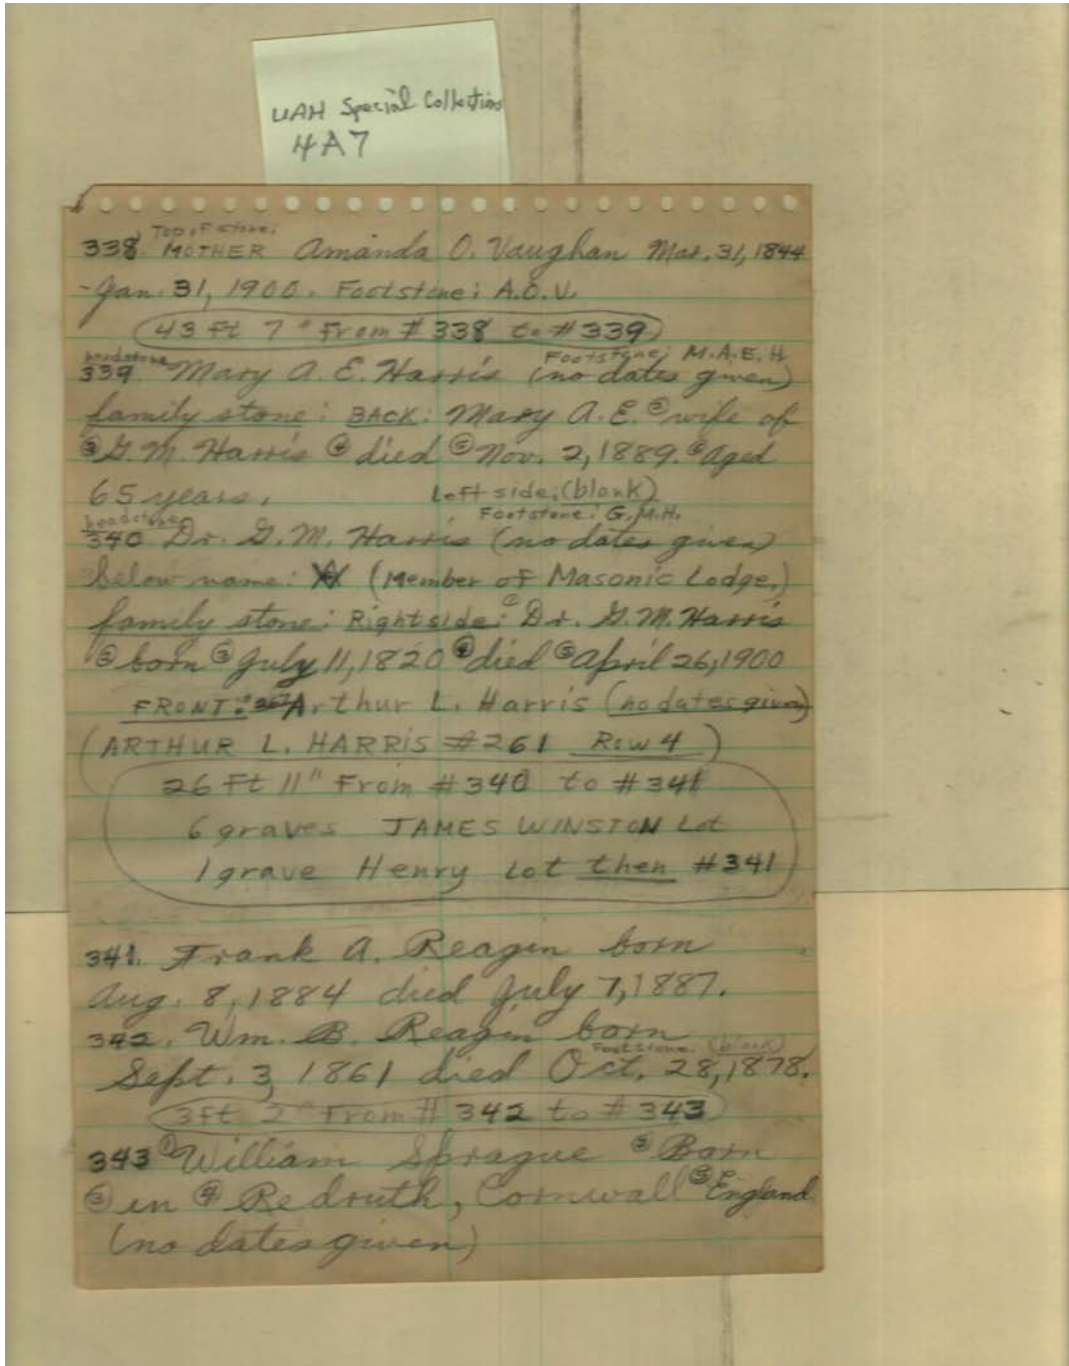 UAH Special Collections
4A7
Top of stone:
338. MOTHER Amanda O. Vaughan Mar. 31, 1844
- Jan. 31, 1900. Footstone: A.O.V.
43 ft 7" From # 338 to # 339
headstone Footstone: M.A.E.H.
339. Mary A. E. Harris (no dates given)
family stone: BACK: Mary A. E. ② wife of
③ G. M. Harris ④ died ⑤ Nov. 2, 1889. ⑥ Aged
65 years. Left side: (blank)
headstone Footstone: G.M.H.
340 Dr. G. M. Harris (no dates given)
below name: (Member of Masonic Lodge.)
family stone: Right side: ① Dr. G. M. Harris
② born ③ July 11, 1820 ④ died ⑤ April 26, 1900
FRONT: Arthur L. Harris (no dates given)
(ARTHUR L. HARRIS #261 Row 4)
26 Ft 11" From #340 to #341
6 graves JAMES WINSTON Lot
1 grave Henry Lot then #341
341. Frank A. Reagin born
Aug. 8, 1884 died July 7, 1887.
342. Wm. B. Reagin born
Footstone: (blank)
Sept. 3, 1861 died Oct. 28, 1878.
3 ft 2" From # 342 to # 343
343 ① William Sprague ② Born
③ in ④ Redruth, Cornwall ⑤ England
(no dates given)